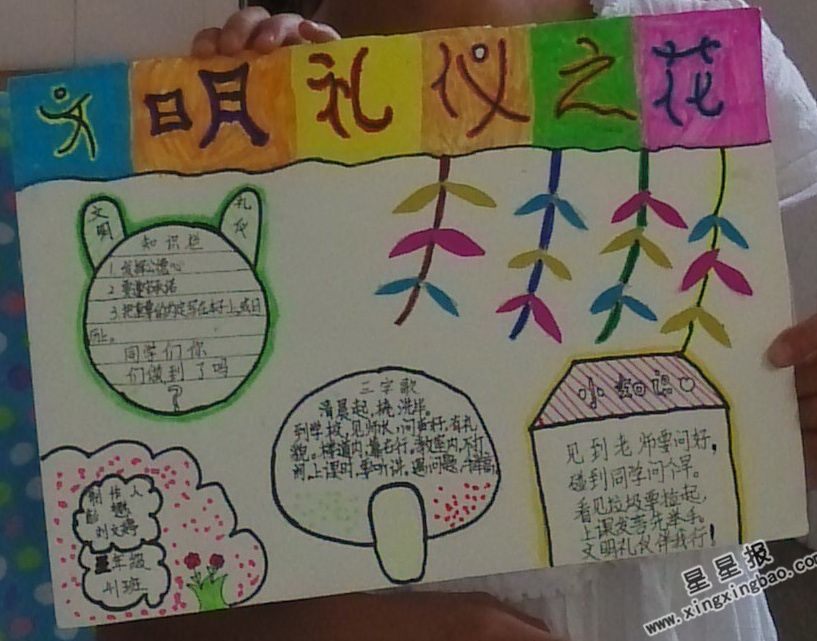 文明礼仪之花
文明
礼仪
知识栏
1.发挥公德心
2.要遵守承诺
3.把重要的内定写在本子上,或日
历上。
同学们你
们做到了吗
?
三字歌
清晨起,梳洗毕。
到学校,见师长,问声好,有礼
貌。楼道内,靠右行。教室内,不打
闹,上课时,要听讲,遇问题,
小知识
见到老师要问好,
碰到同学问个早。
看见垃圾要捡起,
上课发言先举手。
文明礼仪伴我行!
制作人
刘文婷
年级
班
星星报
www.xingxingbao.com